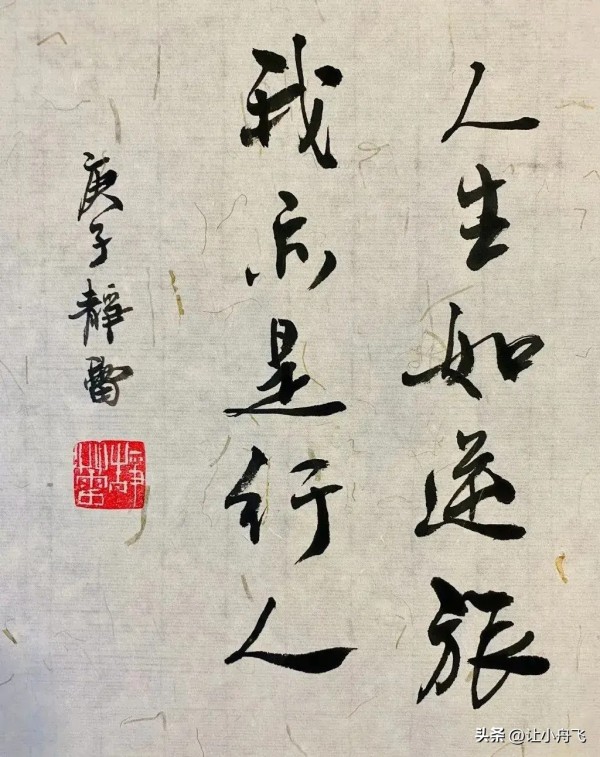 人生如逆旅
我亦是行人
庚子静雷
静蕾
头条 @让小舟飞